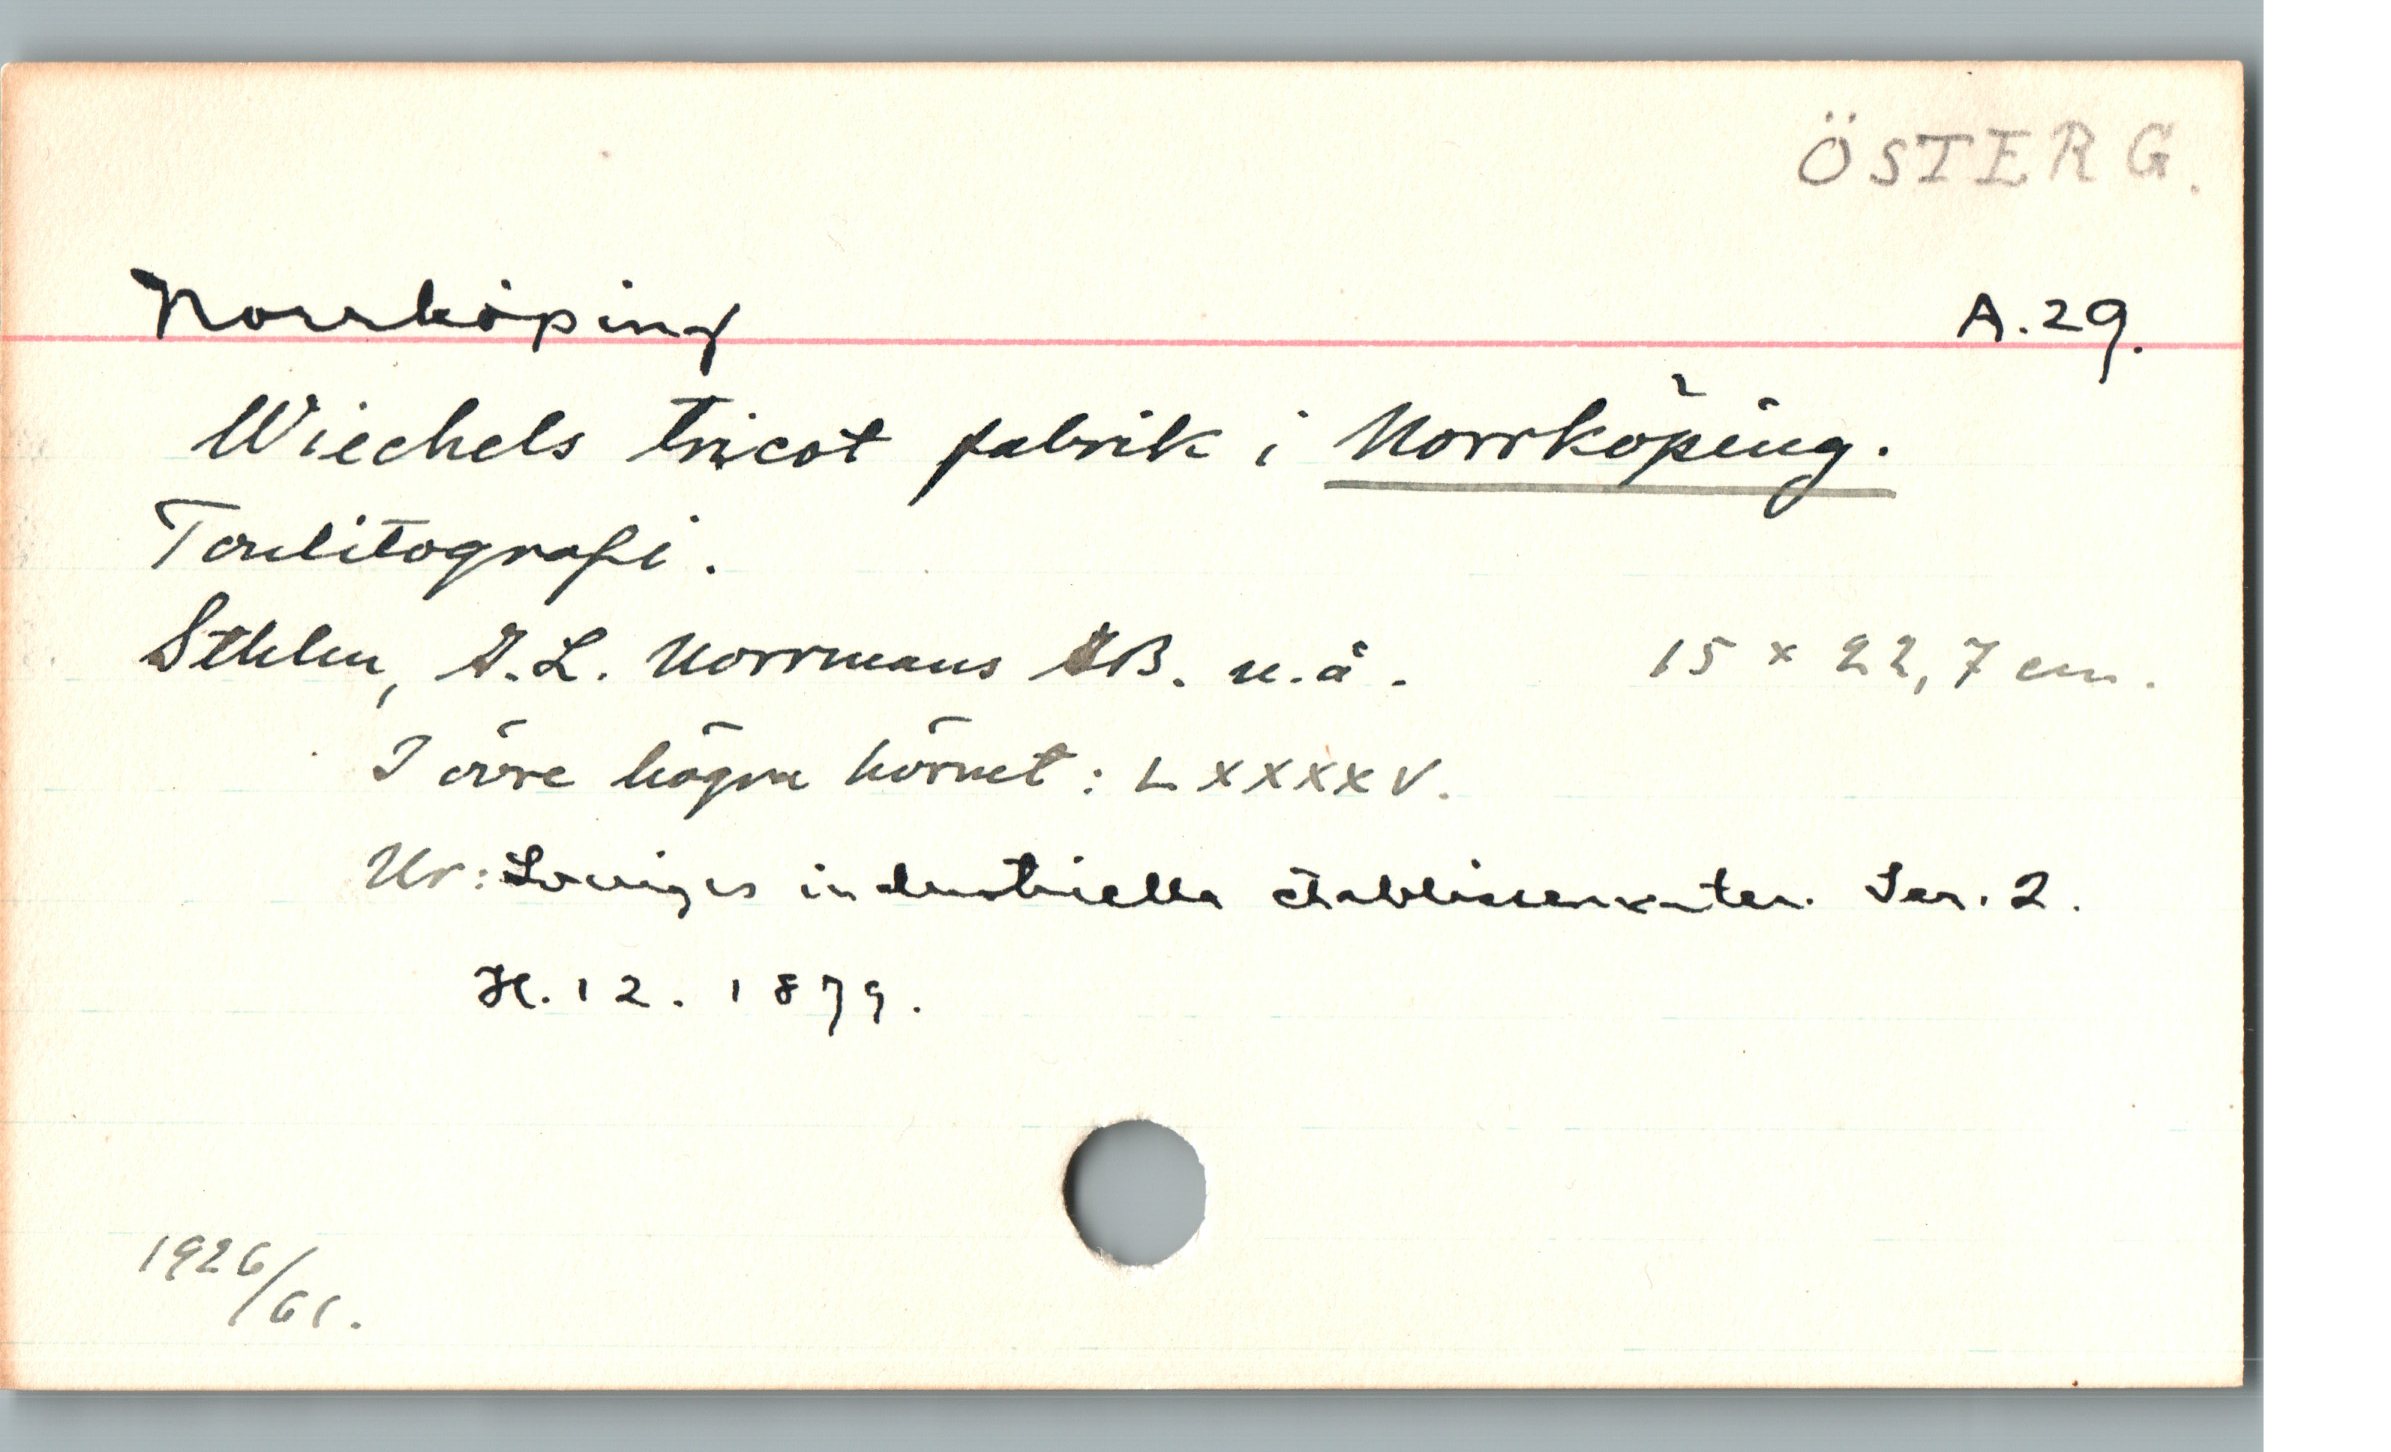 ÖSTERG.
Norrköping A.29.
Wiechels tricot fabrik i Norrköping.
Tonlitografi.
Sthlm, G.L. Norrmans AB. u.å. 15 x 22,7 cm.
I övre högra hörnet: LXXXXV.
Ur: Sveriges industriella etablissementer. Ser. 2.
H. 12. 1879.
1926/61.